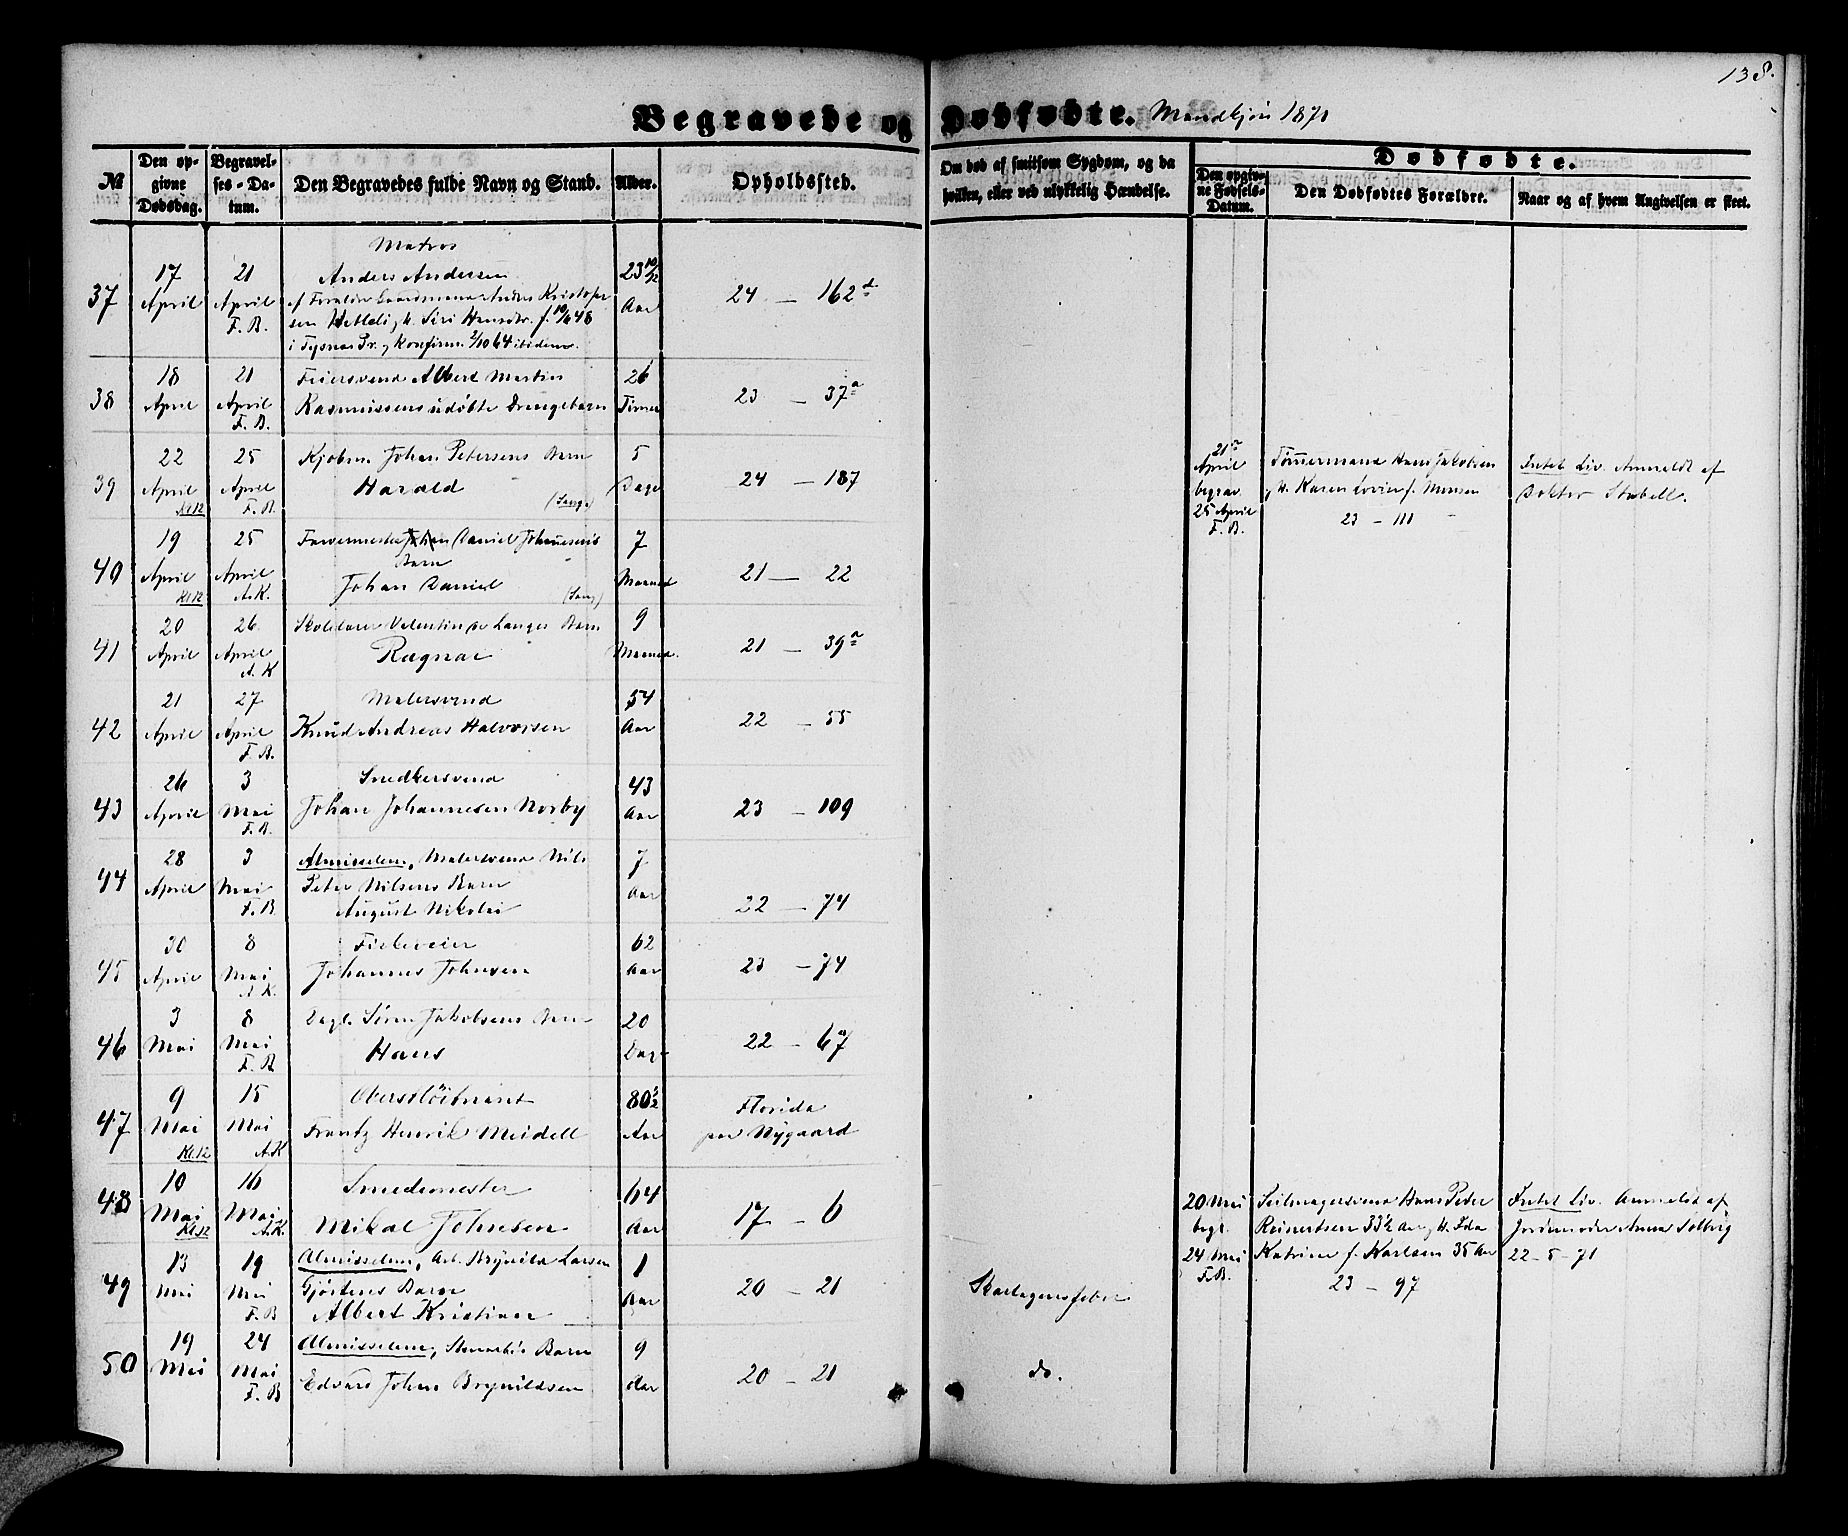 138.
Begravede og Dødfødte. Mandkjøn 1871
№
Den opgivne Dødsdag.
Begravelses-Datum.
Den Begravedes fulde Navn og Stand.
Alder.
Opholdssted.
Om død af smitsom Sygdom, og da hvilken, eller ved ulykkelig Hændelse.
Dødfødte.
Den opgivne Fødsels-Datum.
Den Dødfødtes Forældre.
Naar og af hvem Angivelsen er skeet.
37
17 April
21 April F. B.
Matros
Anders Andersen
sen Hetleli og H. Siri Hansdtr. f. 19/6 48
i Tysnæs Pr. og Konfirm. 2/10 64 ibidem.
23 10/12 Aar
24 — 162 d
38
18 April
21 April F. B.
Feiersvend Albert Martin
Rasmussens udøbte Drengebarn
26 Timer
23 — 37 a
39
22 April Kl 12
25 April F. B.
Kjøbm. Johan Petersens Barn
Harald
(Sang)
5 Dage
24 — 187
21de April begrav. 25 April F. B.
Tømmermand Hans Jakobsen
og H. Karen Lovise f. Monsen
23 — 111
Intet Liv. Anmeldt af
Doktor Stabell.
40
19 April Kl 12
25 April A. K.
Farvermester Johan Daniel Johannesens
Barn
Johan Daniel
(Sang)
7 Maaned
21 — 22
41
20 April
26 April A. K
Skolelærer Valentin de Langes Barn
Ragnar
9 Maaned.
21 — 39 a
42
21 April
27 April F. B.
Malersvend
Knud Andreas Halvorsen
54 Aar
22 — 55
43
26 April
3 Mai F. B.
Snedkersvend
Johan Johannesen Norby
43 Aar
23 — 109
44
28 April
3 Mai F. B
Almisselem, Malersvend Nils
Peter Nilsens Barn
August Nikolai
7 Aar
22 — 74
45
30 April
8 Mai A. K.
Fieleveier
Johannes Johnsen
62 Aar
23 — 74
46
3 Mai
8 Mai F. B
Dagl. Sören Jakobsens Barn
Hans
20 Dage
22 — 67 a
47
9 Mai Kl. 12
15 Mai A. K
Oberstlöitnant
Frantz Henrik Meidell
80½ Aar
Florida
paa Nygaard
48
10 Mai Kl 12
16 Mai A. K.
Smedemester
Mikal Johnsen
64 Aar
17 — 6
20 Mai begr. 24 Mai F. B.
Seilmagersvend Hans Peder
Reinertsen 33½ Aar og H. Ida
Katrine f. Karlsen 35 Aar
23 — 97
Intet Liv. Anmeldt af
Jordemoder Anna Solvig
22-5-71
49
13 Mai
19 Mai F. B
Almisselem, Arb. Brynild Larsen
Gjöstens Barn
Albert Kristian
1 Aar
20 — 21
Skarlagensfeber
50
19 Mai
24 Mai F. B
Almisselem, Barn
Edvard Johan Brynildsen
9 Aar
20 — 21
do.